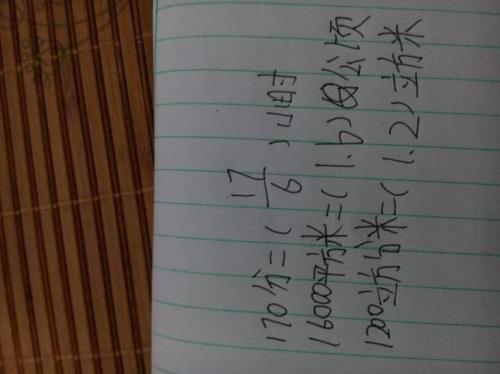 170分=(17/6)小时
16000平方米=(1.6)公顷
1200立方分米=(1.2)立方米